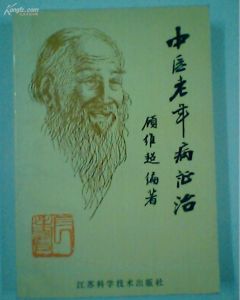 Kongfz.com
中医老年病证治
顾维超编著
江苏科学技术出版社